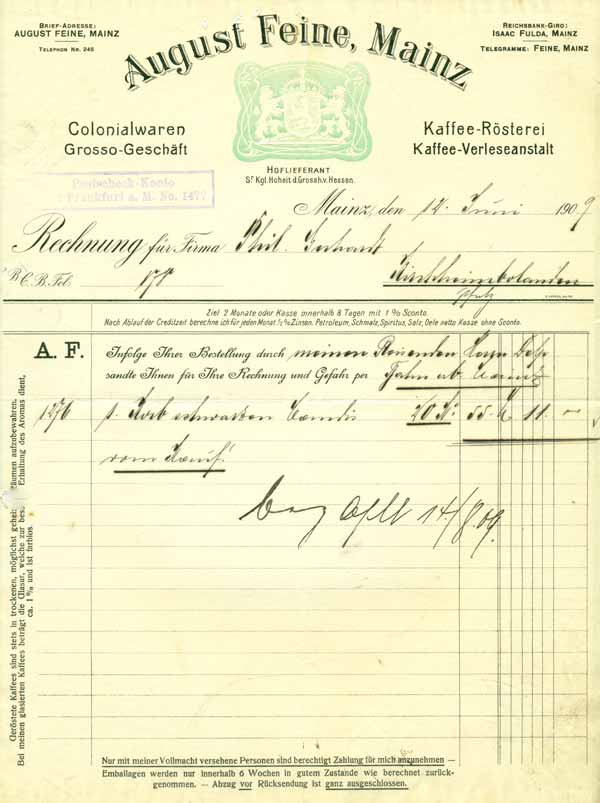 BRIEF-ADRESSE:
AUGUST FEINE, MAINZ
TELEPHON NR. 245
REICHSBANK-GIRO:
ISAAC FULDA, MAINZ
TELEGRAMME: FEINE, MAINZ
August Feine, Mainz
Colonialwaren
Grosso-Geschäft
Kaffee-Rösterei
Kaffee-Verleseanstalt
HOFLIEFERANT
Sr Kgl. Hoheit d. Grossh. v. Hessen.
Postscheck-Konto
Frankfurt a. M. No. 1477
Mainz, den 12. Juni 1909
Rechnung für Firma Phil. Gerhardt
Kirchheimbolanden
Pfalz
Ziel 2 Monate oder Kasse innerhalb 8 Tagen mit 1% Sconto.
Nach Ablauf der Creditzeit berechne ich für jeden Monat ½% Zinsen. Petroleum, Schmalz, Spiritus, Salz, Oele netto Kasse ohne Sconto.
A. F.
Infolge Ihrer Bestellung durch meinen Reisenden Herrn
sandte Ihnen für Ihre Rechnung und Gefahr per Bahn ab Mainz
1276 1. Korb schwarzen Candis 20 Ko 55. 11. —
14/8 09.
Geröstete Kaffees sind stets in trockenen, möglichst Räumen aufzubewahren.
Bei meinen glasierten Kaffees beträgt die Glasur, welche zur Erhaltung des Aromas dient,
ca. 1% und ist farblos
Nur mit meiner Vollmacht versehene Personen sind berechtigt Zahlung für mich anzunehmen —
Emballagen werden nur innerhalb 6 Wochen in gutem Zustande wie berechnet zurück-
genommen. — Abzug vor Rücksendung ist ganz ausgeschlossen.